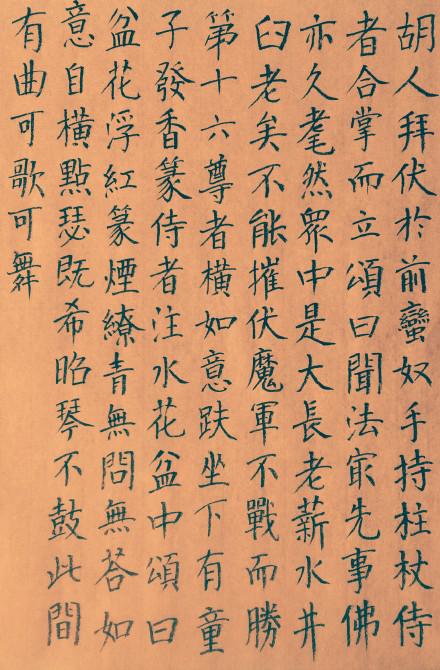 胡人拜伏於前蠻奴手持柱杖侍
者合掌而立頌曰聞法㝡先事佛
亦久耄然眾中是大長老薪水井
臼老矣不能摧伏魔軍不戰而勝
第十六尊者橫如意趺坐下有童
子發香篆侍者注水花盆中頌曰
盆花浮紅篆煙繚青無問無荅如
意自橫點瑟既希昭琴不鼓此間
有曲可歌可舞